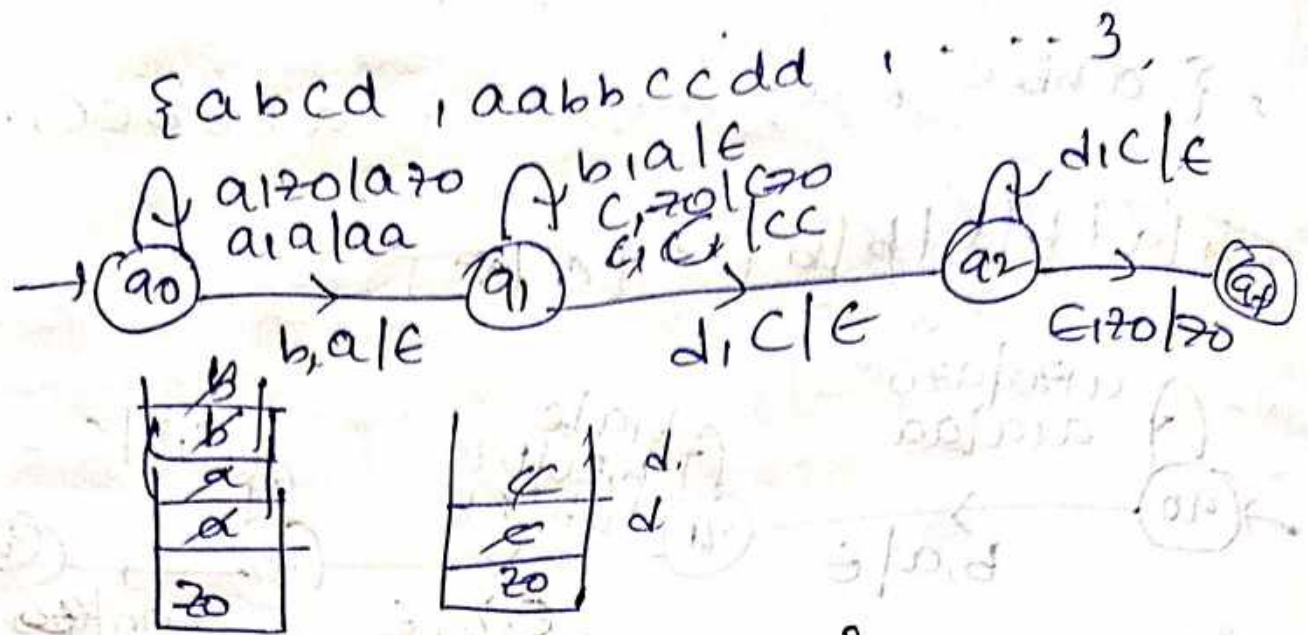 {abcd , aabbccdd , . . . . }
a,z0/az0
a,a/aa
b,a/ε
c,z0/cz0
c,c/cc
d,c/ε
q0
q1
q2
qf
b,a/ε
d,c/ε
ε,z0/z0
b
b
a
a
z0
c
c
z0
d
d